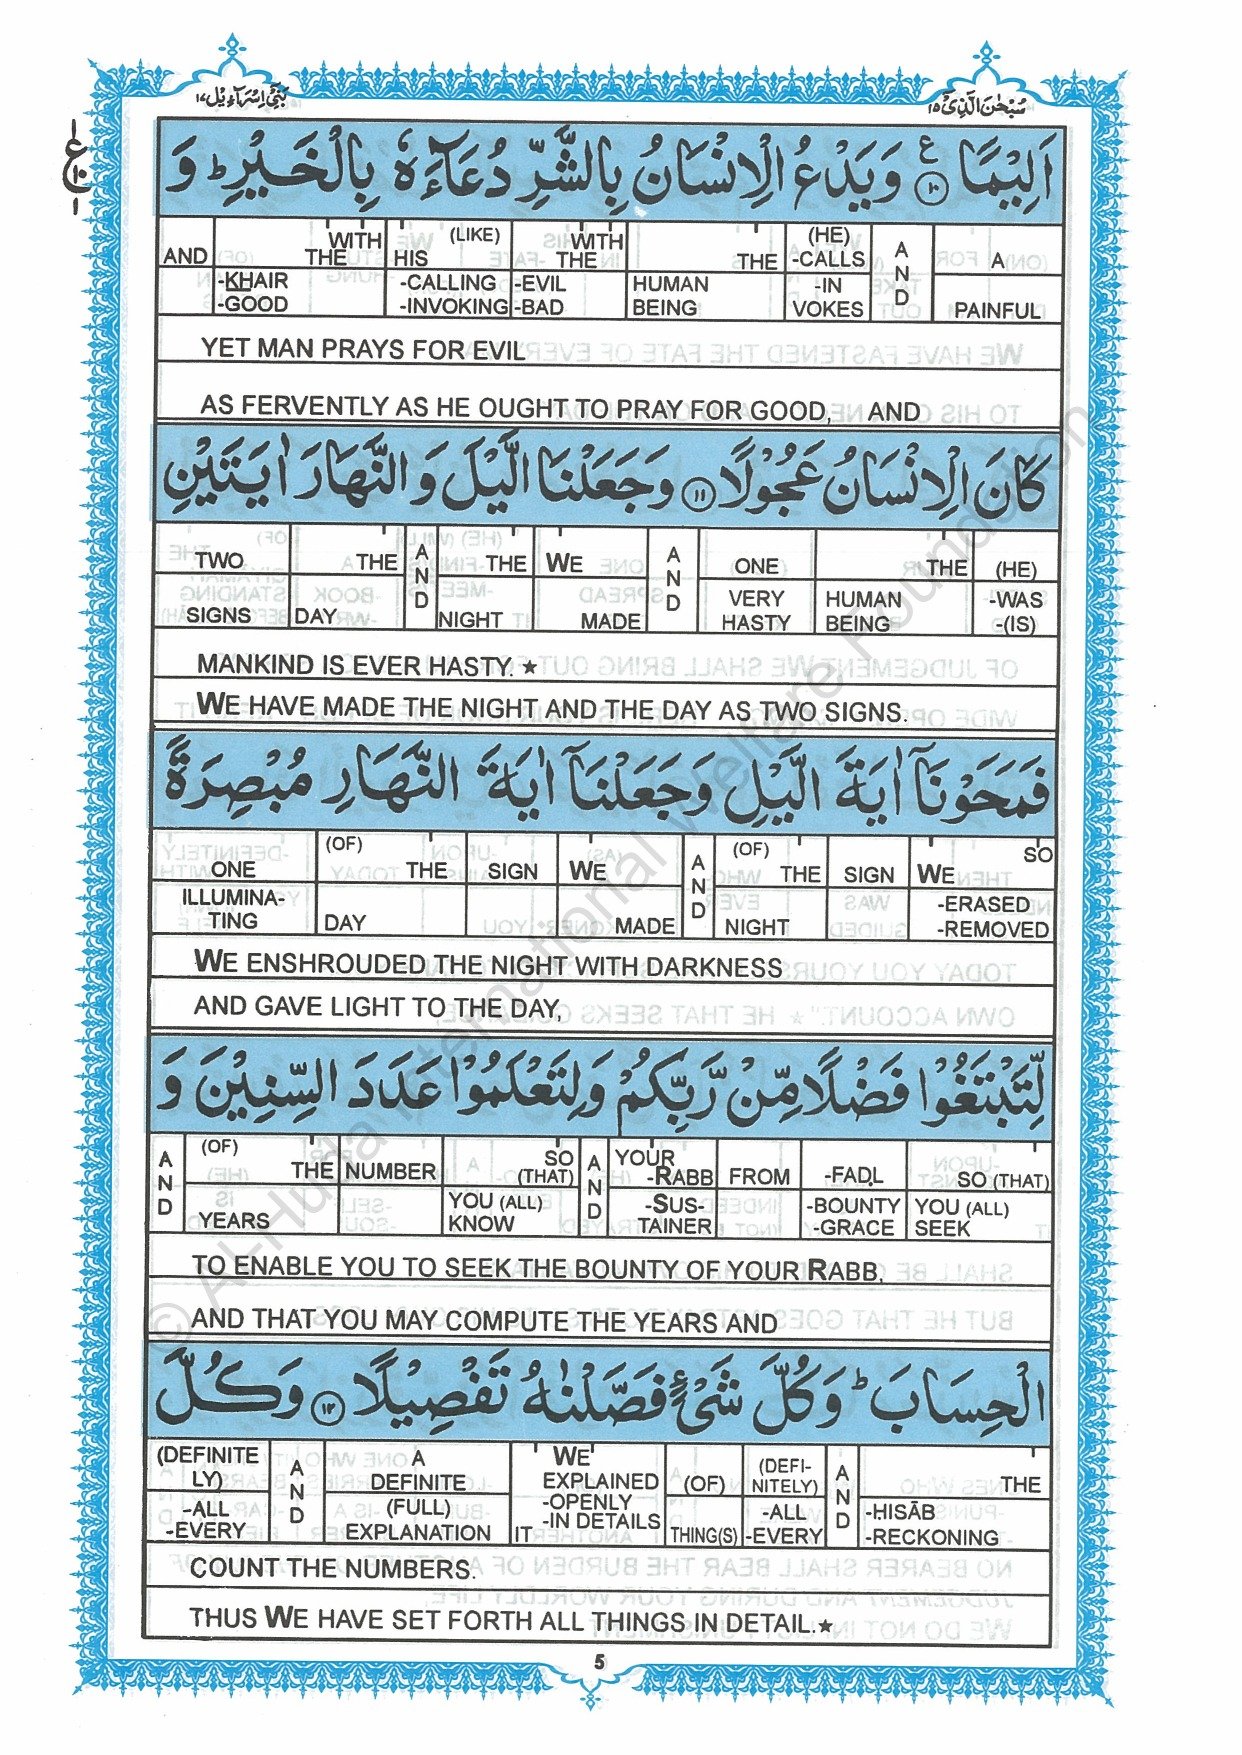 بَنِیْۤ اِسْرَآءِیْل ۱۷
سُبْحٰنَ الَّذِیْۤ ۱۵
ع
۱۰
۱
اَلِیْمًا ﴿۱۰﴾ ع وَیَدْعُ الْاِنْسَانُ بِالشَّرِّ دُعَآءَهٗ بِالْخَیْرِ ؕ وَ
AND WITH THE (LIKE) HIS WITH THE THE (HE) -CALLS AND A
-KHAIR -GOOD -CALLING -INVOKING -EVIL -BAD HUMAN BEING -IN VOKES PAINFUL
YET MAN PRAYS FOR EVIL
AS FERVENTLY AS HE OUGHT TO PRAY FOR GOOD, AND
كَانَ الْاِنْسَانُ عَجُوْلًا ﴿۱۱﴾ وَجَعَلْنَا الَّیْلَ وَ النَّهَارَ اٰیَتَیْنِ
TWO THE AND THE WE AND ONE THE (HE)
SIGNS DAY NIGHT MADE VERY HASTY HUMAN BEING -WAS -(IS)
MANKIND IS EVER HASTY. ★
WE HAVE MADE THE NIGHT AND THE DAY AS TWO SIGNS.
فَمَحَوْنَاۤ اٰیَةَ الَّیْلِ وَجَعَلْنَاۤ اٰیَةَ النَّهَارِ مُبْصِرَةً
ONE (OF) THE SIGN WE AND (OF) THE SIGN SO WE
ILLUMINA- TING DAY MADE NIGHT -ERASED -REMOVED
WE ENSHROUDED THE NIGHT WITH DARKNESS
AND GAVE LIGHT TO THE DAY,
لِّتَبْتَغُوْا فَضْلًا مِّنْ رَّبِّكُمْ وَلِتَعْلَمُوْا عَدَدَ السِّنِیْنَ وَ
AND (OF) THE NUMBER SO (THAT) AND YOUR -RABB FROM -FADL SO (THAT)
YEARS YOU (ALL) KNOW -SUS- TAINER -BOUNTY -GRACE YOU (ALL) SEEK
TO ENABLE YOU TO SEEK THE BOUNTY OF YOUR RABB,
AND THAT YOU MAY COMPUTE THE YEARS AND
الْحِسَابَ ؕ وَكُلَّ شَیْءٍ فَصَّلْنٰهُ تَفْصِیْلًا ﴿۱۲﴾ وَكُلَّ
(DEFINITE LY) AND A DEFINITE WE EXPLAINED (OF) (DEFI- NITELY) AND THE
-ALL -EVERY (FULL) EXPLANATION IT -OPENLY -IN DETAILS THING(S) -ALL -EVERY -HISĀB -RECKONING
COUNT THE NUMBERS.
THUS WE HAVE SET FORTH ALL THINGS IN DETAIL.★
5
© Al-Huda International Welfare Foundation